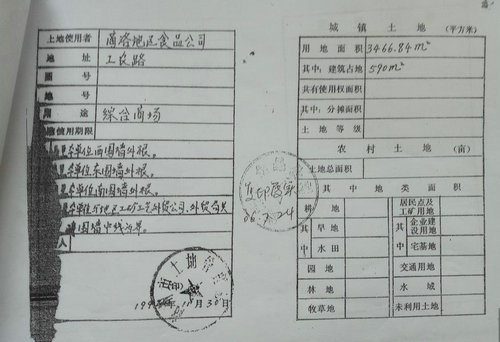 土地使用者 商洛地区食品公司
地 址 工农路
图 号
地 号
用 途 综合商场
使用期限
本单位西围墙外根。
本单位东围墙外根。
本单位南围墙外根。
围墙中线为界。
人
土地管
11月30日
复印属实
城镇土地 (平方米)
用地面积 3466.84m²
其中:建筑占地 590m²
共有使用权面积
其中:分摊面积
土地等级
农村土地 (亩)
土地总面积
其中地类面积
耕 地 居民点及工矿用地
其 旱地 其 企业建设用地
中 水田 中 宅基地
园 地 交通用地
林 地 水 域
牧草地 未利用土地